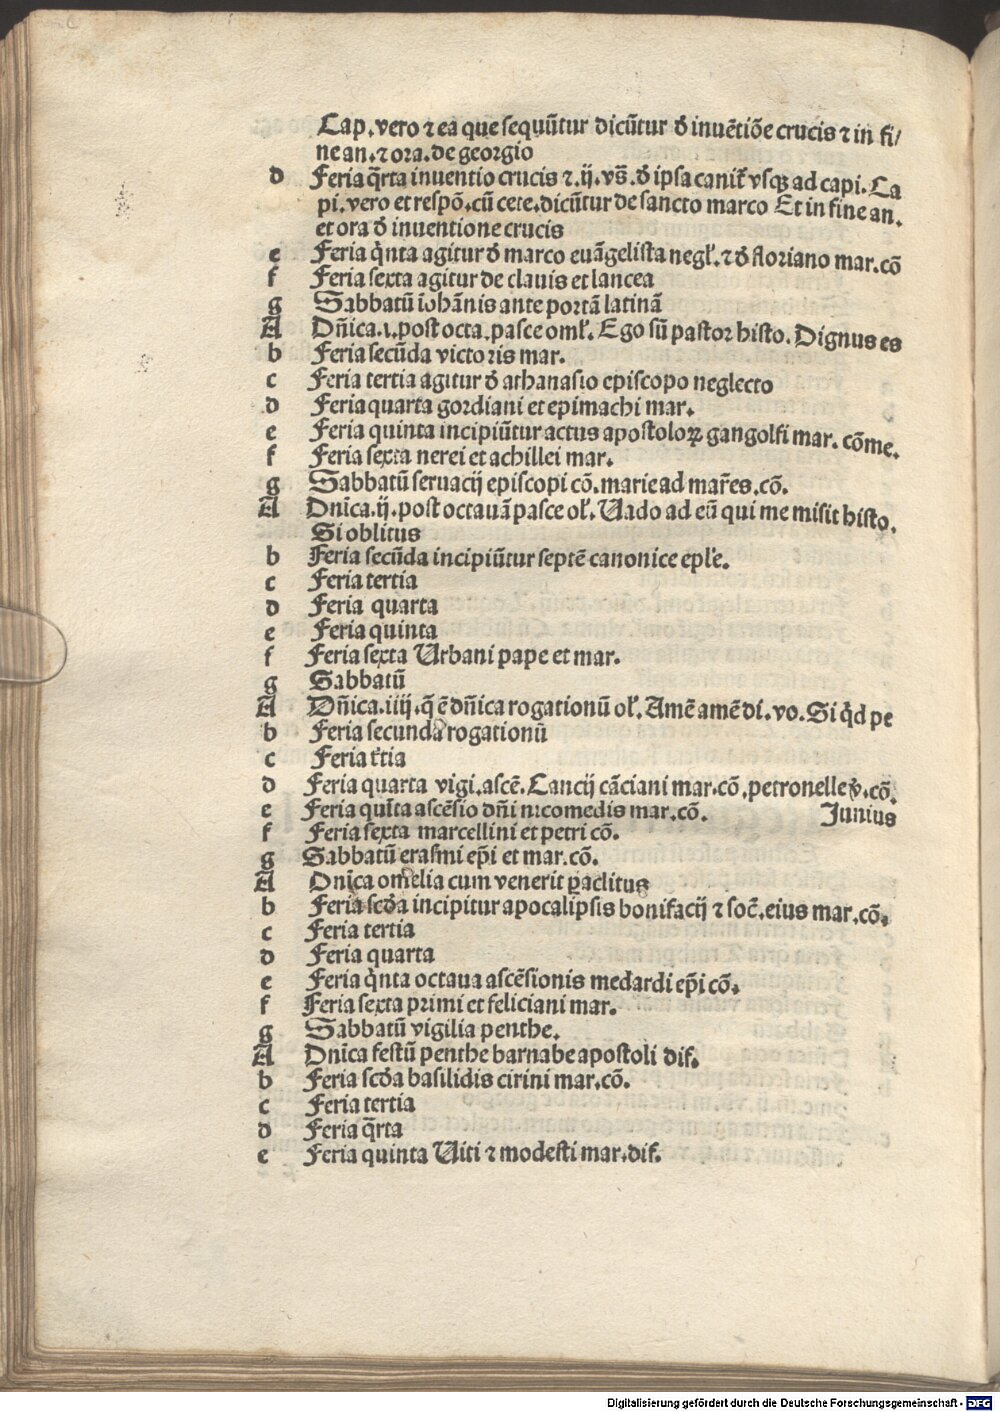 Cap. vero ⁊ ea que sequūtur dicūtur đ inuētiōe crucis ⁊ in fi/
ne an. ⁊ ora. de georgio
d Feria q̄rta inuentio crucis ⁊. ij. vs̄. đ ipsa canit᷑ vsqꝫ ad capi. Ca
pi. vero et respō. cū cete. dicūtur de sancto marco Et in fine an.
et ora đ inuentione crucis
e Feria q̇nta agitur đ marco euāgelista negl᷑. ⁊ đ floriano mar. cō
f Feria sexta agitur de clauis et lancea
g Sabbatū iohānis ante portā latinā
A Dn̄ica. i. post octa. pasce oml᷑. Ego sū pastor histo. Dignus es
b Feria secūda victoris mar.
c Feria tertia agitur đ athanasio episcopo neglecto
d Feria quarta gordiani et epimachi mar.
e Feria quinta incipiūtur actus apostoloꝝ gangolfi mar. cōme.
f Feria sexta nerei et achillei mar.
g Sabbatū seruacij episcopi cō. marie ad mar̄es. cō.
A Dn̄ica. ij. post octauā pasce ol᷑. Uado ad eū qui me misit histo.
Si oblitus
b Feria secūda incipiūtur septē canonice epl̄e.
c Feria tertia
d Feria quarta
e Feria quinta
f Feria sexta Urbani pape et mar.
g Sabbatū
A Dn̄ica. iiij. q̄ ē dn̄ica rogationū ol᷑. Amē amē di. vo. Si q̇d pe
b Feria secunda rogationū
c Feria t᷑tia
d Feria quarta vigi. ascē. Cancij cāciani mar. cō. petronelle v̄. cō.
e Feria quīta ascēsio dn̄i nicomedis mar. cō. Junius
f Feria sexta marcellini et petri cō.
g Sabbatū erasmi ep̄i et mar. cō.
A Dn̄ica omelia cum venerit ꝑaclitus
b Feria scđa incipitur apocalipsis bonifacij ⁊ soc̄. eius mar. cō.
c Feria tertia
d Feria quarta
e Feria q̇nta octaua ascēsionis medardi ep̄i cō.
f Feria sexta primi et feliciani mar.
g Sabbatū vigilia penthe.
A Dn̄ica festū penthe barnabe apostoli dif.
b Feria scđa basilidis cirini mar. cō.
c Feria tertia
d Feria q̄rta
e Feria quinta Uiti ⁊ modesti mar. dif.
Digitalisierung gefördert durch die Deutsche Forschungsgemeinschaft - DFG